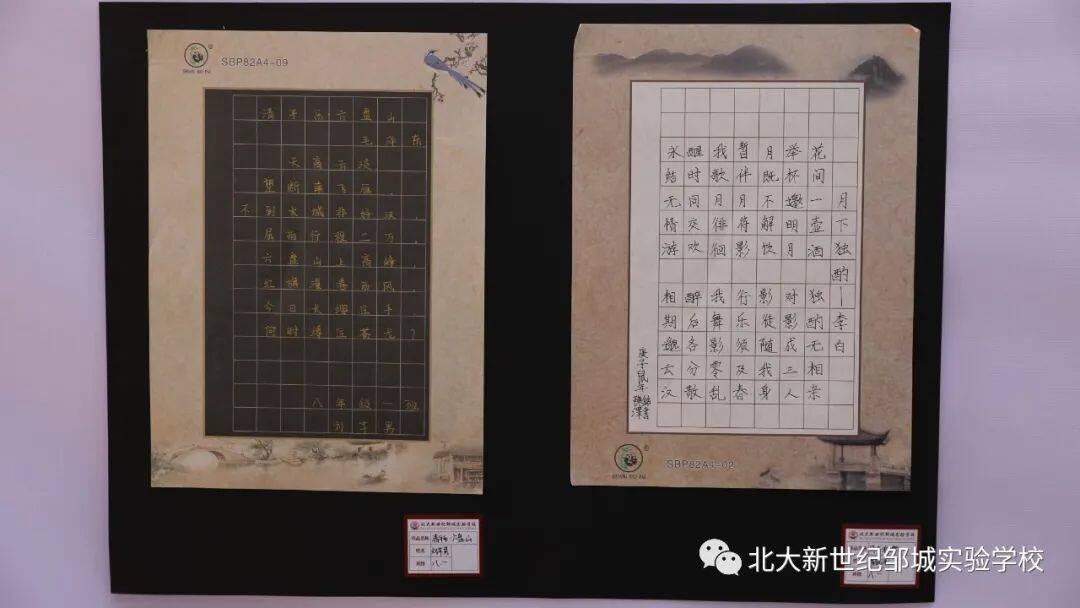 SBP82A4-09
清平乐六盘山
毛泽东
天高云淡
望断南飞雁.
不到长城非好汉,
屈指行程二万.
六盘山上高峰,
红旗漫卷西风.
今日长缨在手,
何时缚住苍龙?
八年级一班
月下独酌—李白
花间一壶酒 独酌无相亲
举杯邀明月 对影成三人
月既不解饮 影徒随我身
暂伴月将影 行乐须及春
我歌月徘徊 我舞影零乱
醒时同交欢 醉后各分散
永结无情游 相期邈云汉
庚子鼠年
SBP82A4-02
北大新世纪邹城实验学校
作品名称
姓名
班级 八一
北大新世纪邹城实验学校